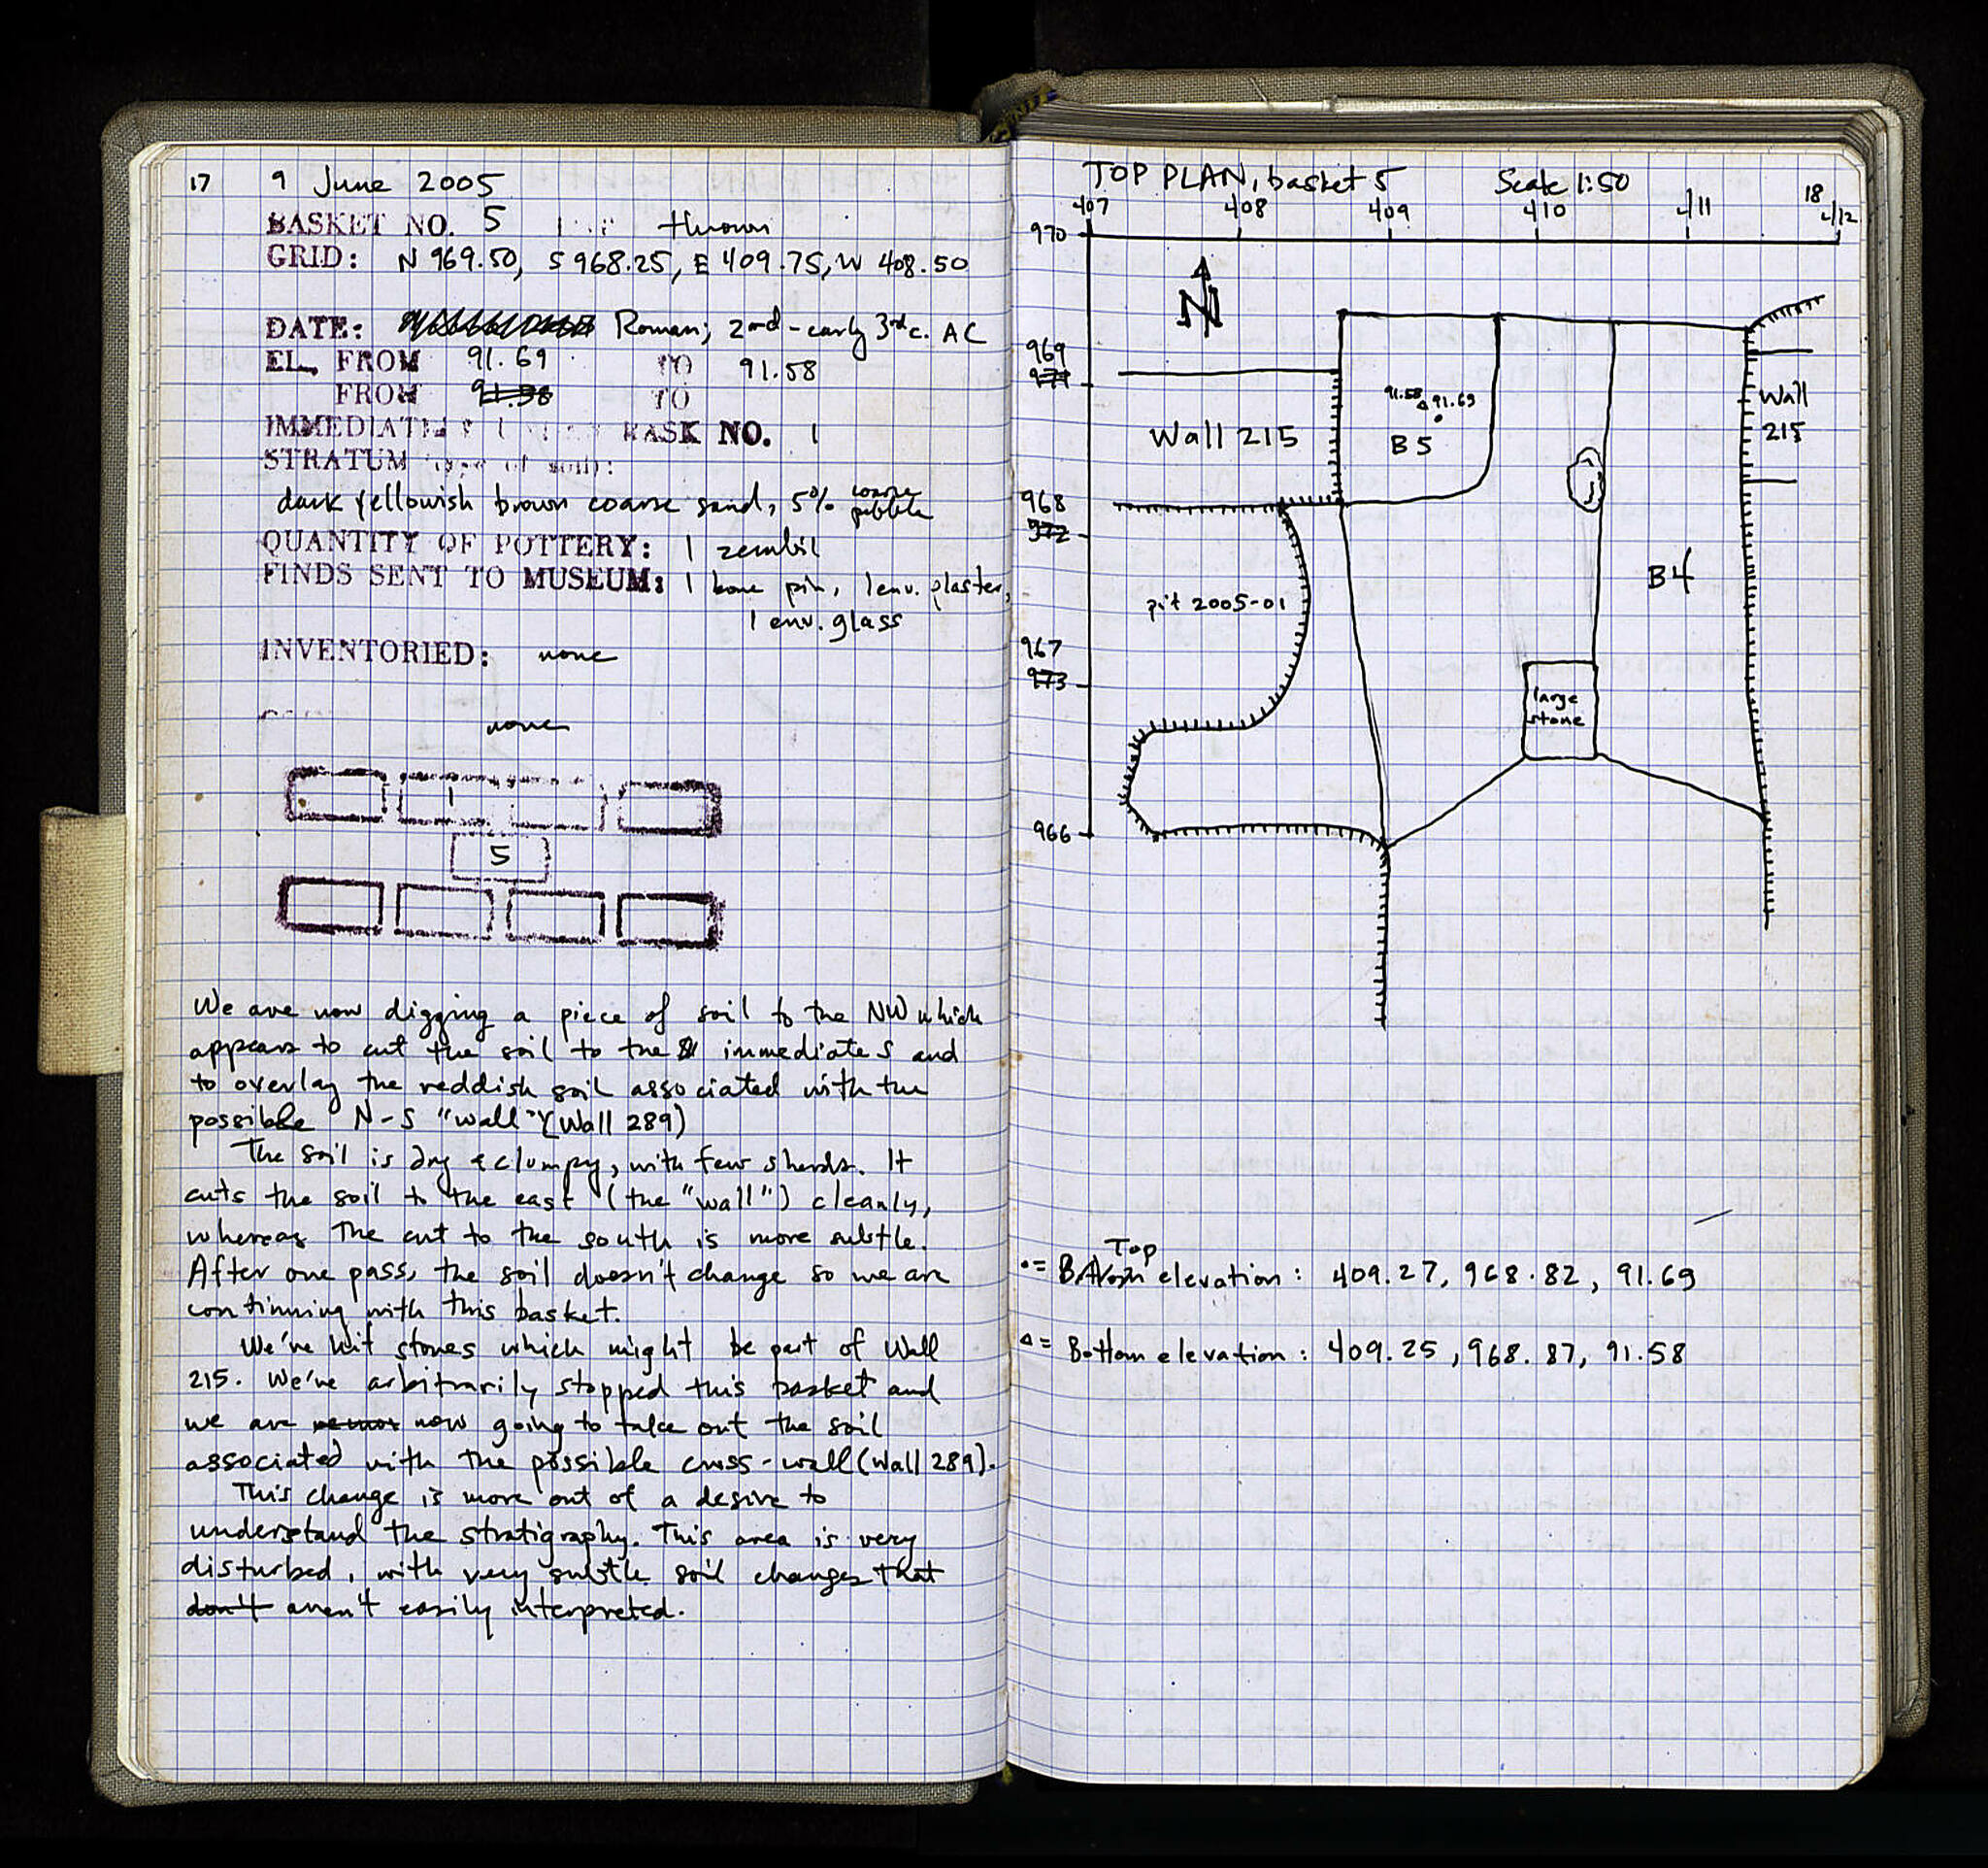 17 9 June 2005
BASKET NO. 5 thrown
GRID: N 969.50, S 968.25, E 409.75, W 408.50
DATE: Roman; 2nd-early 3rd c. AC
EL. FROM 91.69 TO 91.58
FROM 91.58 TO
IMMEDIATELY UNDER BASK NO. 1
STRATUM (type of soil):
dark yellowish brown coarse sand, 5% coarse pebble
QUANTITY OF POTTERY: 1 zembil
FINDS SENT TO MUSEUM: 1 bone pin, 1 env. plaster,
1 env. glass
INVENTORIED: none
none
1
5
We are now digging a piece of soil to the NW which
appears to cut the soil to the immediate S and
to overlay the reddish soil associated with the
possible N-S "wall" (Wall 289)
The soil is dry & clumpy, with few sherds. It
cuts the soil to the east (the "wall") cleanly,
whereas the cut to the south is more subtle.
After one pass, the soil doesn't change so we are
continuing with this basket.
We've hit stones which might be part of Wall
215. We've arbitrarily stopped this basket and
we are now going to take out the soil
associated with the possible cross-wall (Wall 289).
This change is more out of a desire to
understand the stratigraphy. This area is very
disturbed, with very subtle soil changes that
don't aren't easily interpreted.
TOP PLAN, basket 5 Scale 1:50 18
407 408 409 410 411 412
970
N
969
971
91.58 91.69
Wall 215
B5
Wall
215
968
972
B4
pit 2005-01
967
973
large
stone
966
Top
• = Bottom elevation: 409.27, 968.82, 91.69
△ = Bottom elevation: 409.25, 968.87, 91.58